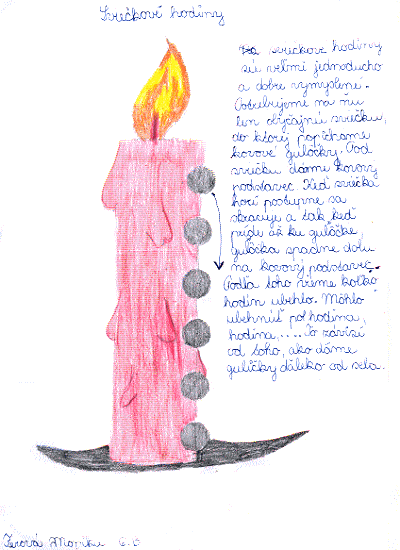 Sviečkové hodiny
sviečkové hodiny
sú veľmi jednoducho
a dobre vymyslené.
Potrebujeme na ňu
len obyčajnú sviečku,
do ktorej popicháme
kovové guločky. Pod
sviečku dáme kovový
podstavec. Keď sviečka
horí postupne sa
skracuje a tak keď
príde až ku guločke,
guločka spadne dolu
na kovový podstavec.
Podľa toho vieme koľko
hodín ubehlo. Mohlo
ubehnúť pol hodina,
hodina,.... To závisí
od toho, ako dáme
guličky ďaleko od seba.
6.